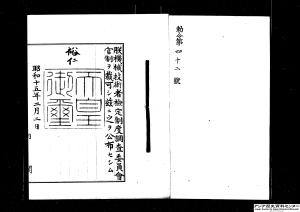 勅令第四十二號
朕機械技術者檢定制度調査委員會
官制ヲ裁可シ茲ニ之ヲ公布セシム
裕仁
天皇
御璽
昭和十五年二月二日
アジア歴史資料センター